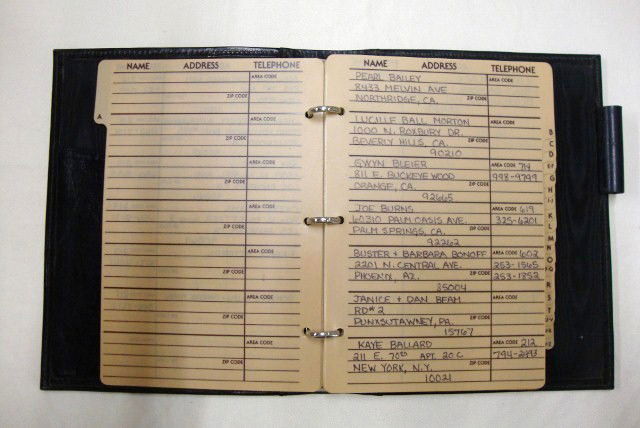 NAME ADDRESS TELEPHONE
AREA CODE
ZIP CODE
AREA CODE
A
ZIP CODE
AREA CODE
ZIP CODE
AREA CODE
ZIP CODE
AREA CODE
ZIP CODE
AREA CODE
ZIP CODE
AREA CODE
ZIP CODE
NAME ADDRESS TELEPHONE
PEARL BAILEY AREA CODE
8433 MELVIN AVE
NORTHRIDGE, CA. ZIP CODE
LUCILLE BALL MORTON AREA CODE
1000 N. ROXBURY DR.
BEVERLY HILLS, CA. ZIP CODE
90210
GWYN BLEIER AREA CODE 714
811 E. BUCKEYEWOOD 998-9799
ORANGE, CA. ZIP CODE
92665
JOE BURNS AREA CODE 619
60310 PALM OASIS AVE. 325-6201
PALM SPRINGS, CA. ZIP CODE
92262
BUSTER & BARBARA BONOFF AREA CODE 602
2201 N. CENTRAL AVE. 253-1565
PHOENIX, AZ. ZIP CODE 253-1852
85004
JANICE & DAN BEAM AREA CODE
RD# 2
PUNXSUTAWNEY, PA. ZIP CODE
15767
KAYE BALLARD AREA CODE 212
211 E. 70th APT. 20 C
NEW YORK, N.Y. ZIP CODE
10021
B
C
D
G
H
K
L
M
N
O
R
S
T